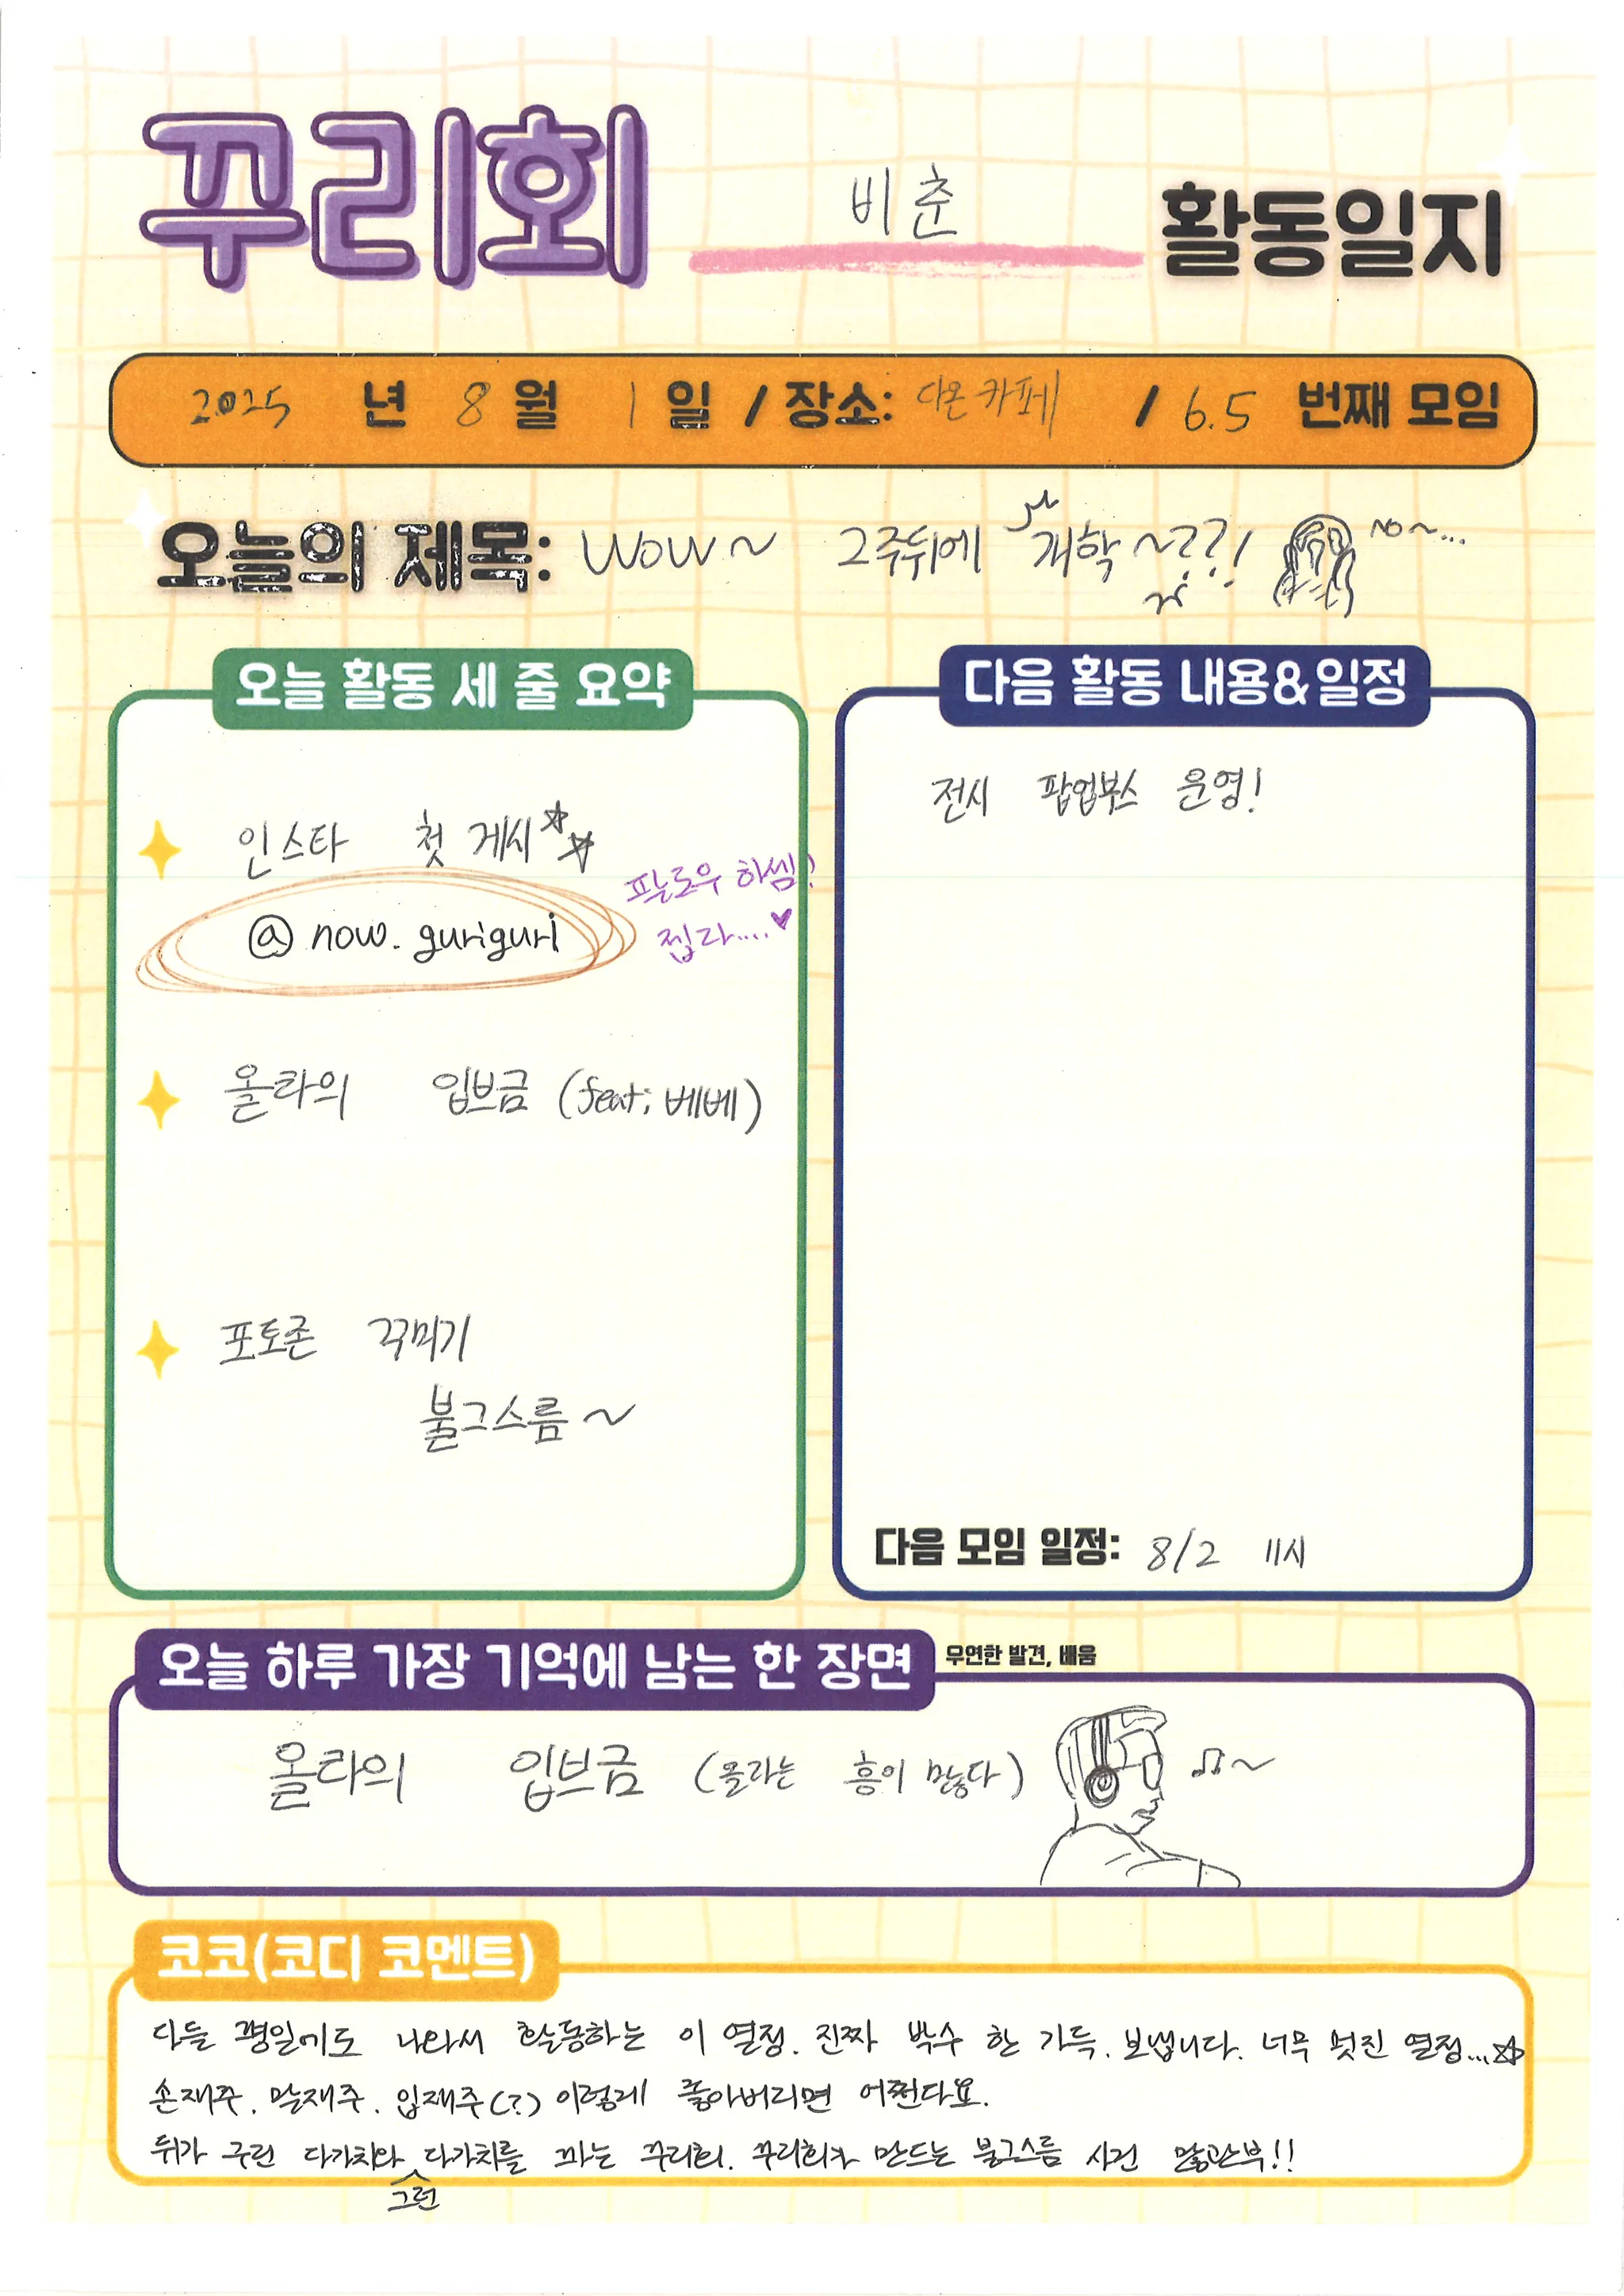 꾸리회 비춘 활동일지
2025 년 8 월 1 일 / 장소: 다온카페 / 6.5 번째 모임
오늘의 제목: WOW~ 2주뒤에 개학~??! no~...
오늘 활동 세 줄 요약
인스타 첫 게시
@now.guriguri
팔로우 하셈!
젭라....♥
올라의 입브금 (feat; 베베)
포토존 꾸미기
불그스름~
다음 활동 내용&일정
전시 팝업부스 운영!
다음 모임 일정: 8/2 11시
오늘 하루 가장 기억에 남는 한 장면 우연한 발견, 배움
올라의 입브금 (올라는 흥이 많다)
코코(코디 코멘트)
다들 평일에도 나와서 활동하는 이 열정. 진짜 박수 한 가득. 보냅니다. 너무 멋진 열정...☆
손재주. 말재주. 입재주(?) 이렇게 좋아버리면 어쩐다요.
뒤가 구린 다가치와 그런 다가치를 까는 꾸리회. 꾸리회가 만드는 불그스름 사건 많관부!!